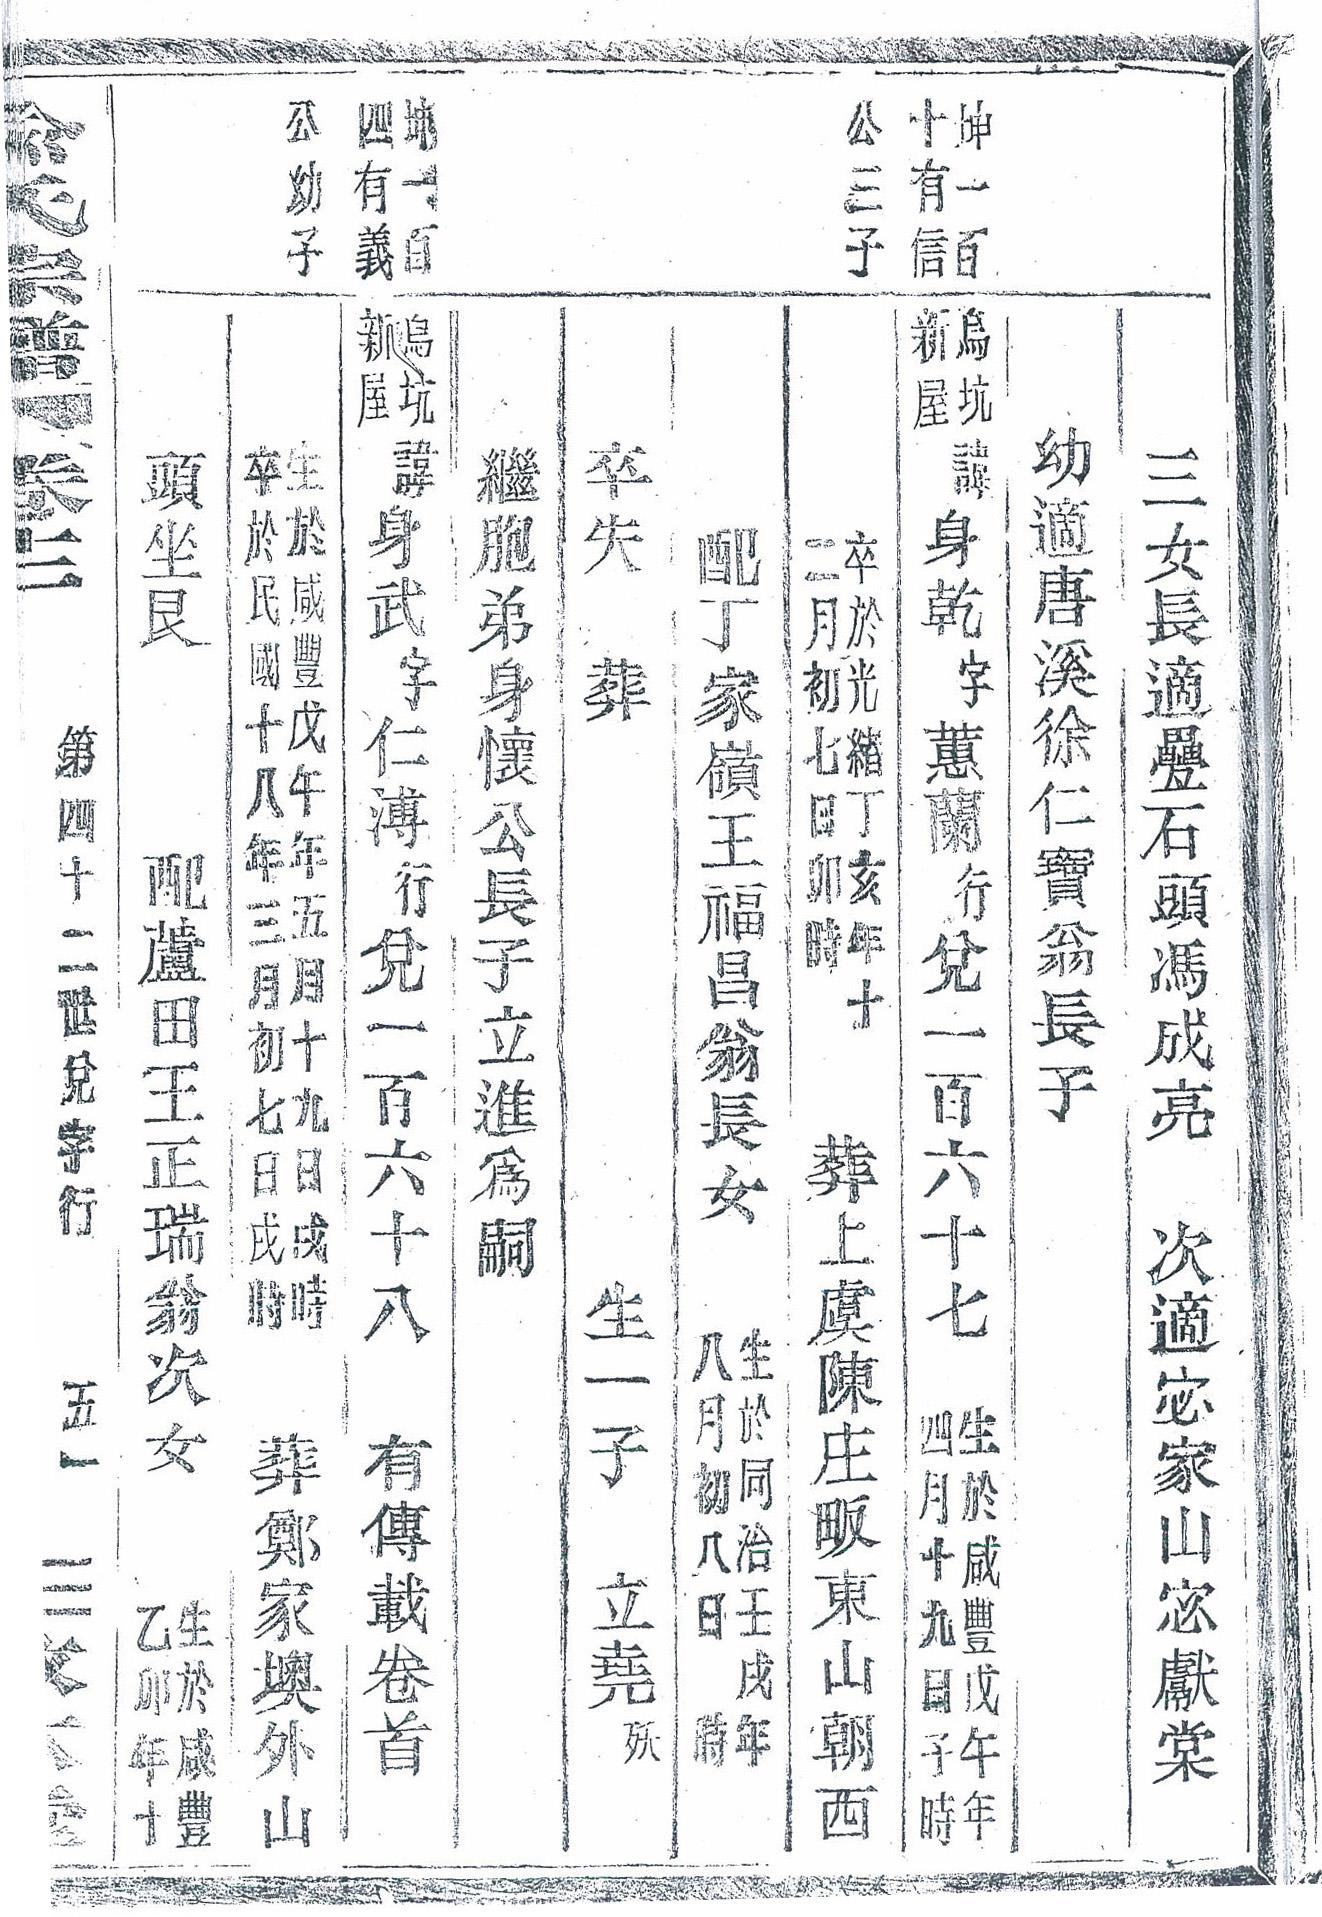 三女長適疊石頭馮成亮　次適宓家山宓獻棠
幼適唐溪徐仁寶翁長子
坤一百
十有信
公三子
烏坑
新屋
諱身乾字蕙蘭行兌一百六十七
生於咸豐戊午年
四月十九日子時
卒於光緒丁亥年十
二月初七日卯時
葬上虞陳庄畈東山朝西
配丁家嶺王福昌翁長女
生於同治壬戌年
八月初八日　時
卒失　葬　生一子　立堯殀
繼胞弟身懷公長子立進爲嗣
坤一百
四有義
公幼子
烏坑
新屋
諱身武字仁溥行兌一百六十八　有傳載卷首
生於咸豐戊午年五月十九日戌時
卒於民國十八年三月初七日戌時
葬鄭家墺外山
頭坐艮　配蘆田王正瑞翁次女
生於咸豐
乙卯年十
氏宗譜　卷三
第四十二世兌字行　五一